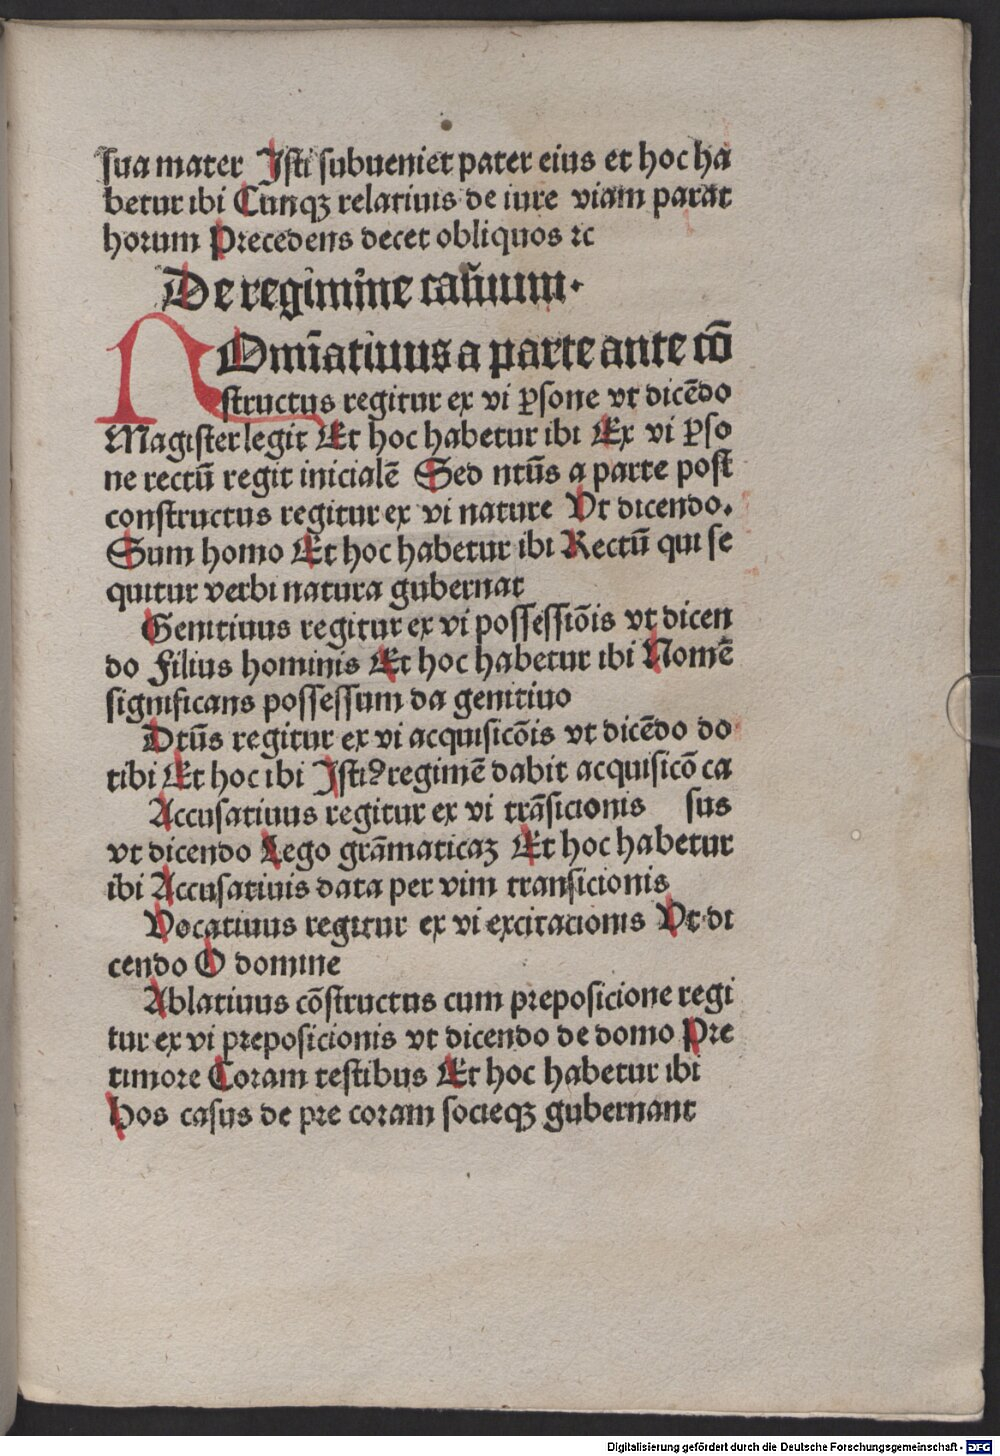 sua mater Isti subueniet pater eius et hoc ha
betur ibi Cunqꝫ relatiuis de iure viam parat
horum Precedens decet obliquos ⁊c
De regimine casuum.
NOmĩatiuus a parte ante cõ
structus regitur ex vi ꝑsone vt dicẽdo
Magister legit Et hoc habetur ibi Ex vi ꝑso
ne rectũ regit inicialẽ Sed ntũs a parte post
constructus regitur ex vi nature Vt dicendo.
Sum homo Et hoc habetur ibi Rectũ qui se
quitur verbi natura gubernat
Genitiuus regitur ex vi possessiõis vt dicen
do Filius hominis Et hoc habetur ibi Nomẽ
significans possessum da genitiuo
Dtũs regitur ex vi acquisicõis vt dicẽdo do
tibi Et hoc ibi Istiꝰ regimẽ dabit acquisicõ ca
Accusatiuus regitur ex vi trãsicionis sus
vt dicendo Lego grãmaticaꝫ Et hoc habetur
ibi Accusatiuis data per vim transicionis
Vocatiuus regitur ex vi excitacionis Vt di
cendo O domine
Ablatiuus cõstructus cum preposicione regi
tur ex vi preposicionis vt dicendo de domo Pre
timore Coram testibus Et hoc habetur ibi
Hos casus de pre coram socieqꝫ gubernant
Digitalisierung gefördert durch die Deutsche Forschungsgemeinschaft - DFG